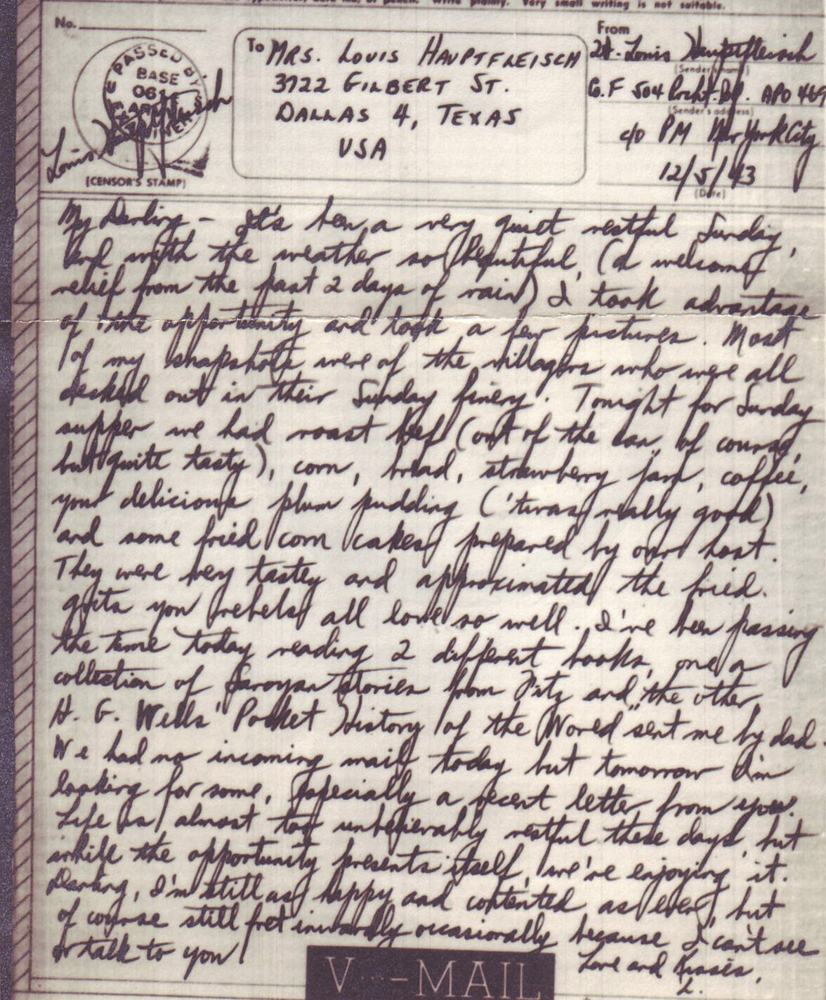 Very small writing is not suitable.
No.
To MRS. LOUIS HAUPTFLEISCH
3722 GILBERT ST.
DALLAS 4, TEXAS
USA
From
Lt. Louis Hauptfleisch
(Sender's name)
Co. F 504 Prcht. APO 469
(Sender's address)
c/o PM New York City
12/5/43
(Date)
PASSED BY
BASE
ARMY
Louis Hauptfleisch
(CENSOR'S STAMP)
My Darling – It's been a very quiet restful Sunday,
and with the weather so beautiful, (a welcome
relief from the past 2 days of rain) I took advantage
of the opportunity and took a few pictures. Most
of my snapshots were of the villagers who were all
decked out in their Sunday finery. Tonight for Sunday
supper we had roast beef (out of the can, of course,
but quite tasty), corn, bread, strawberry jam, coffee,
your delicious plum pudding ('twas really good)
and some fried corn cakes prepared by our host.
They were very tastey and approximated the fried.
grits you rebels all love so well. I've been passing
the time today reading 2 different books, one a
collection of Saroyan stories from Fitz and the other
H. G. Wells' "Pocket History of the World sent me by dad.
We had no incoming mail today but tomorrow I'm
looking for some, especially a recent letter from you.
Life is almost too unbelievably restful these days but
while the opportunity presents itself, we're enjoying it.
Darling, I'm still as happy and contented as ever, but
of course still fret inwardly occasionally because I can't see
or talk to you!
Love and Kisses,
L.
V···—MAIL